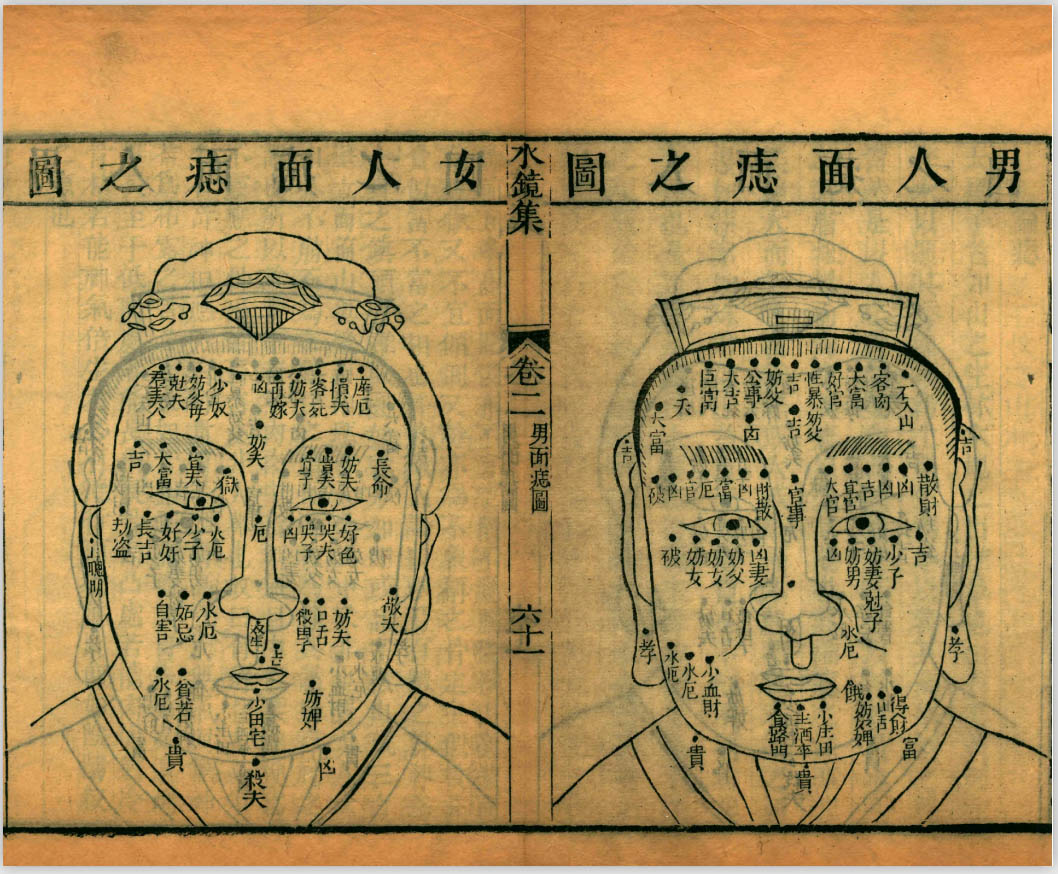 男人面痣之圖
不入山
客的
大富
好官
性暴妨父
吉
妨父
公事
大吉
巨富
夭
大富
吉
凶
吉
吉
散財
凶
凶
吉
宜官
大官
官事
財散
凶
富
厄
官
凶
破
吉
少子
妨妻剋子
妨男
凶
凶妻
妨父
妨女
妨女
破
孝
孝
水厄
小血財
水厄
水厄
得財
口舌
妨婢
餓
富
小庄田
主酒卒
食路門
貴
貴
水鏡集
卷二
男面痣圖
六十一
女人面痣之圖
產厄
損夫
客死
妨夫
再嫁
凶
少奴
妨父母
剋夫
君夫人
妨夫
長命
妨夫
宜子
獄
宜夫
大富
吉
好色
哭夫
哭子
凶
厄
火厄
少子
好奸
長吉
劫盗
聰明
妨夫
口舌
殺四子
水厄
妬忌
自害
妨婢
少田宅
貧若
水厄
貴
凶
殺夫